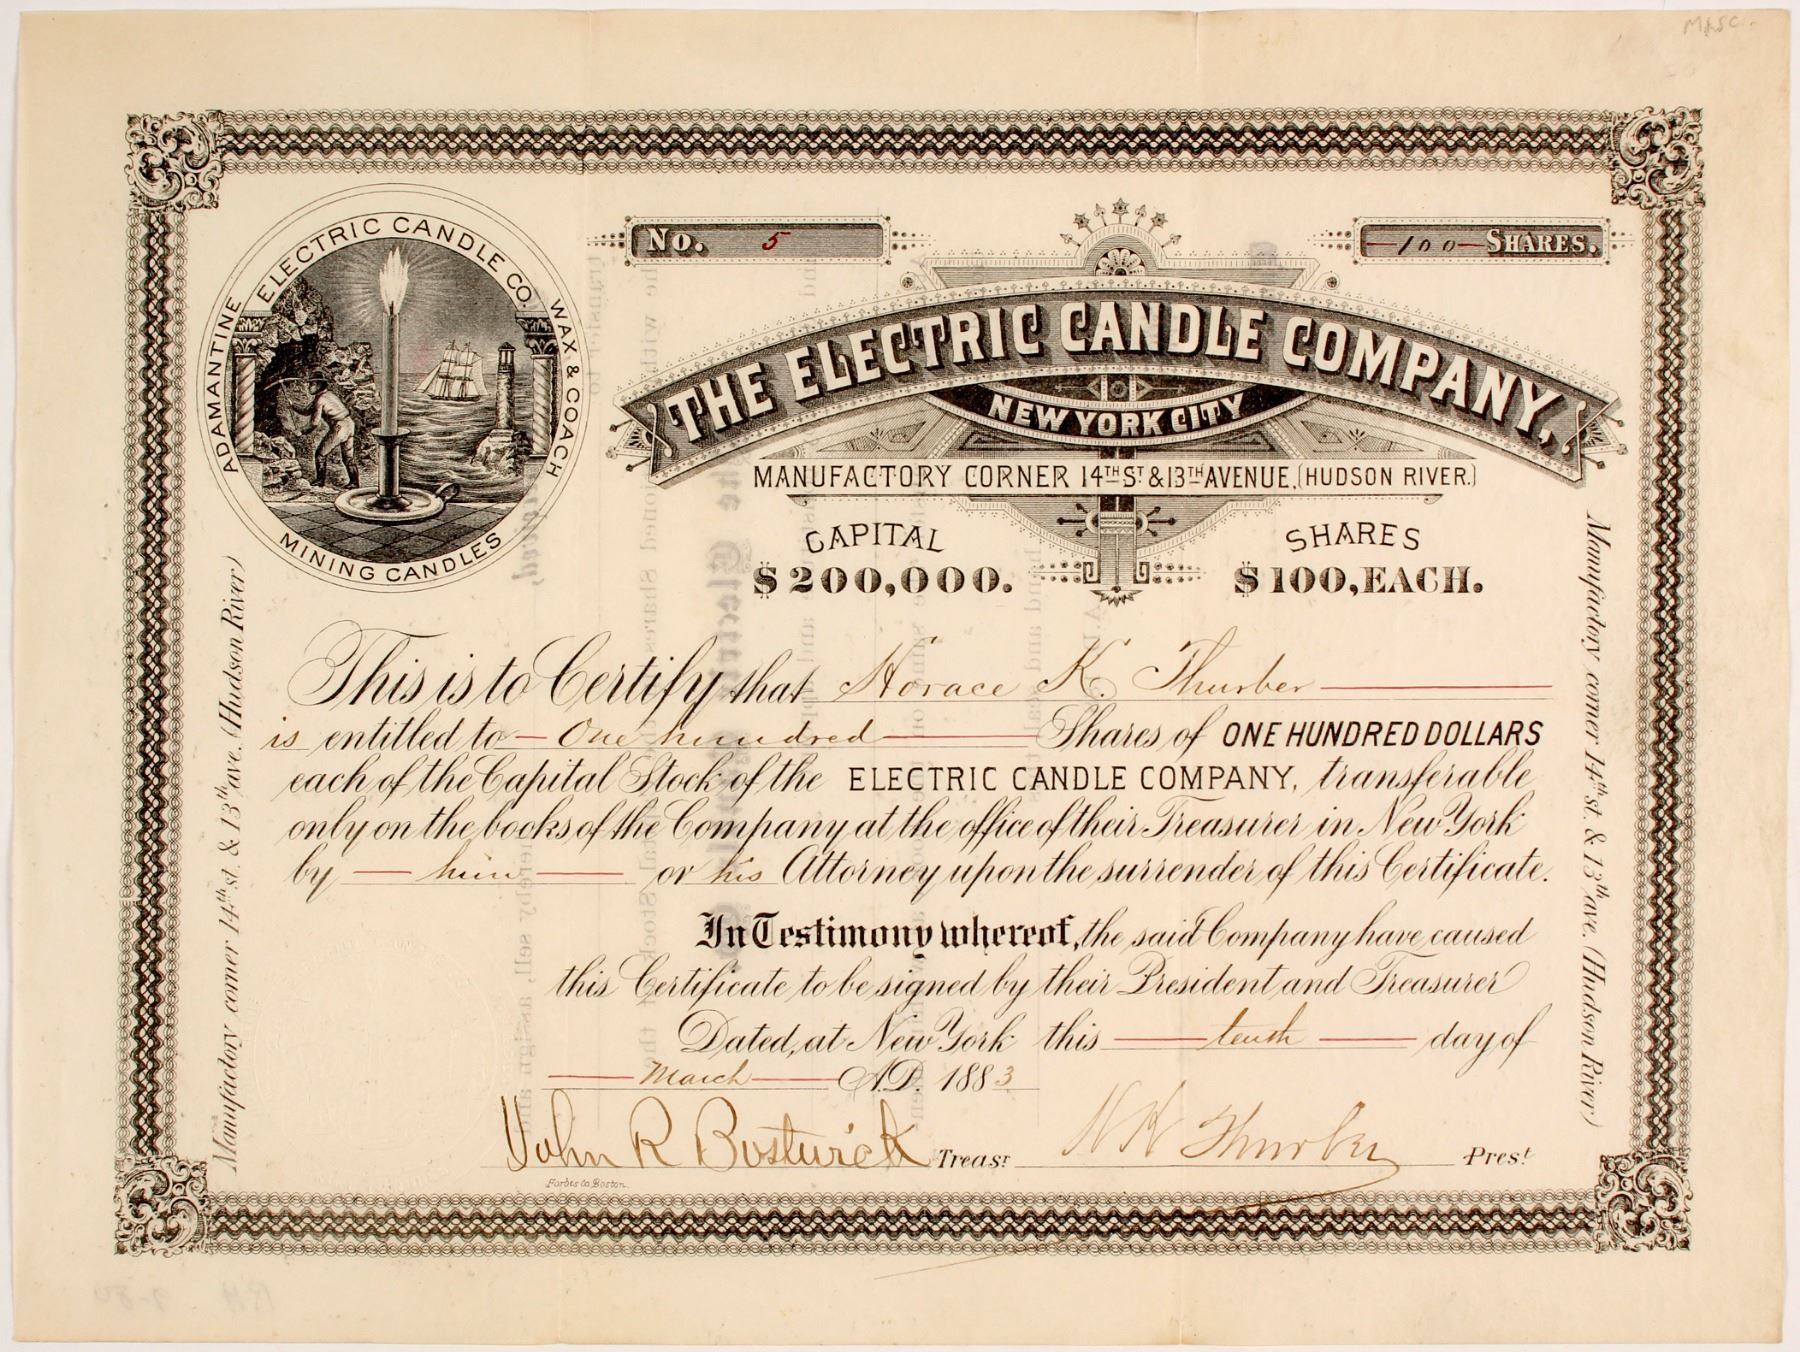 MISC.
ADAMANTINE ELECTRIC CANDLE CO. WAX & COACH
MINING CANDLES
No. 5
100 SHARES.
THE ELECTRIC CANDLE COMPANY,
NEW YORK CITY
MANUFACTORY CORNER 14TH ST & 13TH AVENUE, (HUDSON RIVER.)
CAPITAL
$200,000.
SHARES
$100, EACH.
Manufactory corner 14th st. & 13th ave. (Hudson River)
Manufactory corner 14th st. & 13th ave. (Hudson River)
This is to Certify that Horace K. Thurber
is entitled to One hundred Shares of ONE HUNDRED DOLLARS
each of the Capital Stock of the ELECTRIC CANDLE COMPANY, transferable
only on the books of the Company at the office of their Treasurer in New York
by him or his Attorney upon the surrender of this Certificate.
In Testimony whereof, the said Company have caused
this Certificate to be signed by their President and Treasurer
Dated, at New York this tenth day of
March A.D. 1883
John R Bostwick Treasr H K Thurber Prest
Forbes Co. Boston.